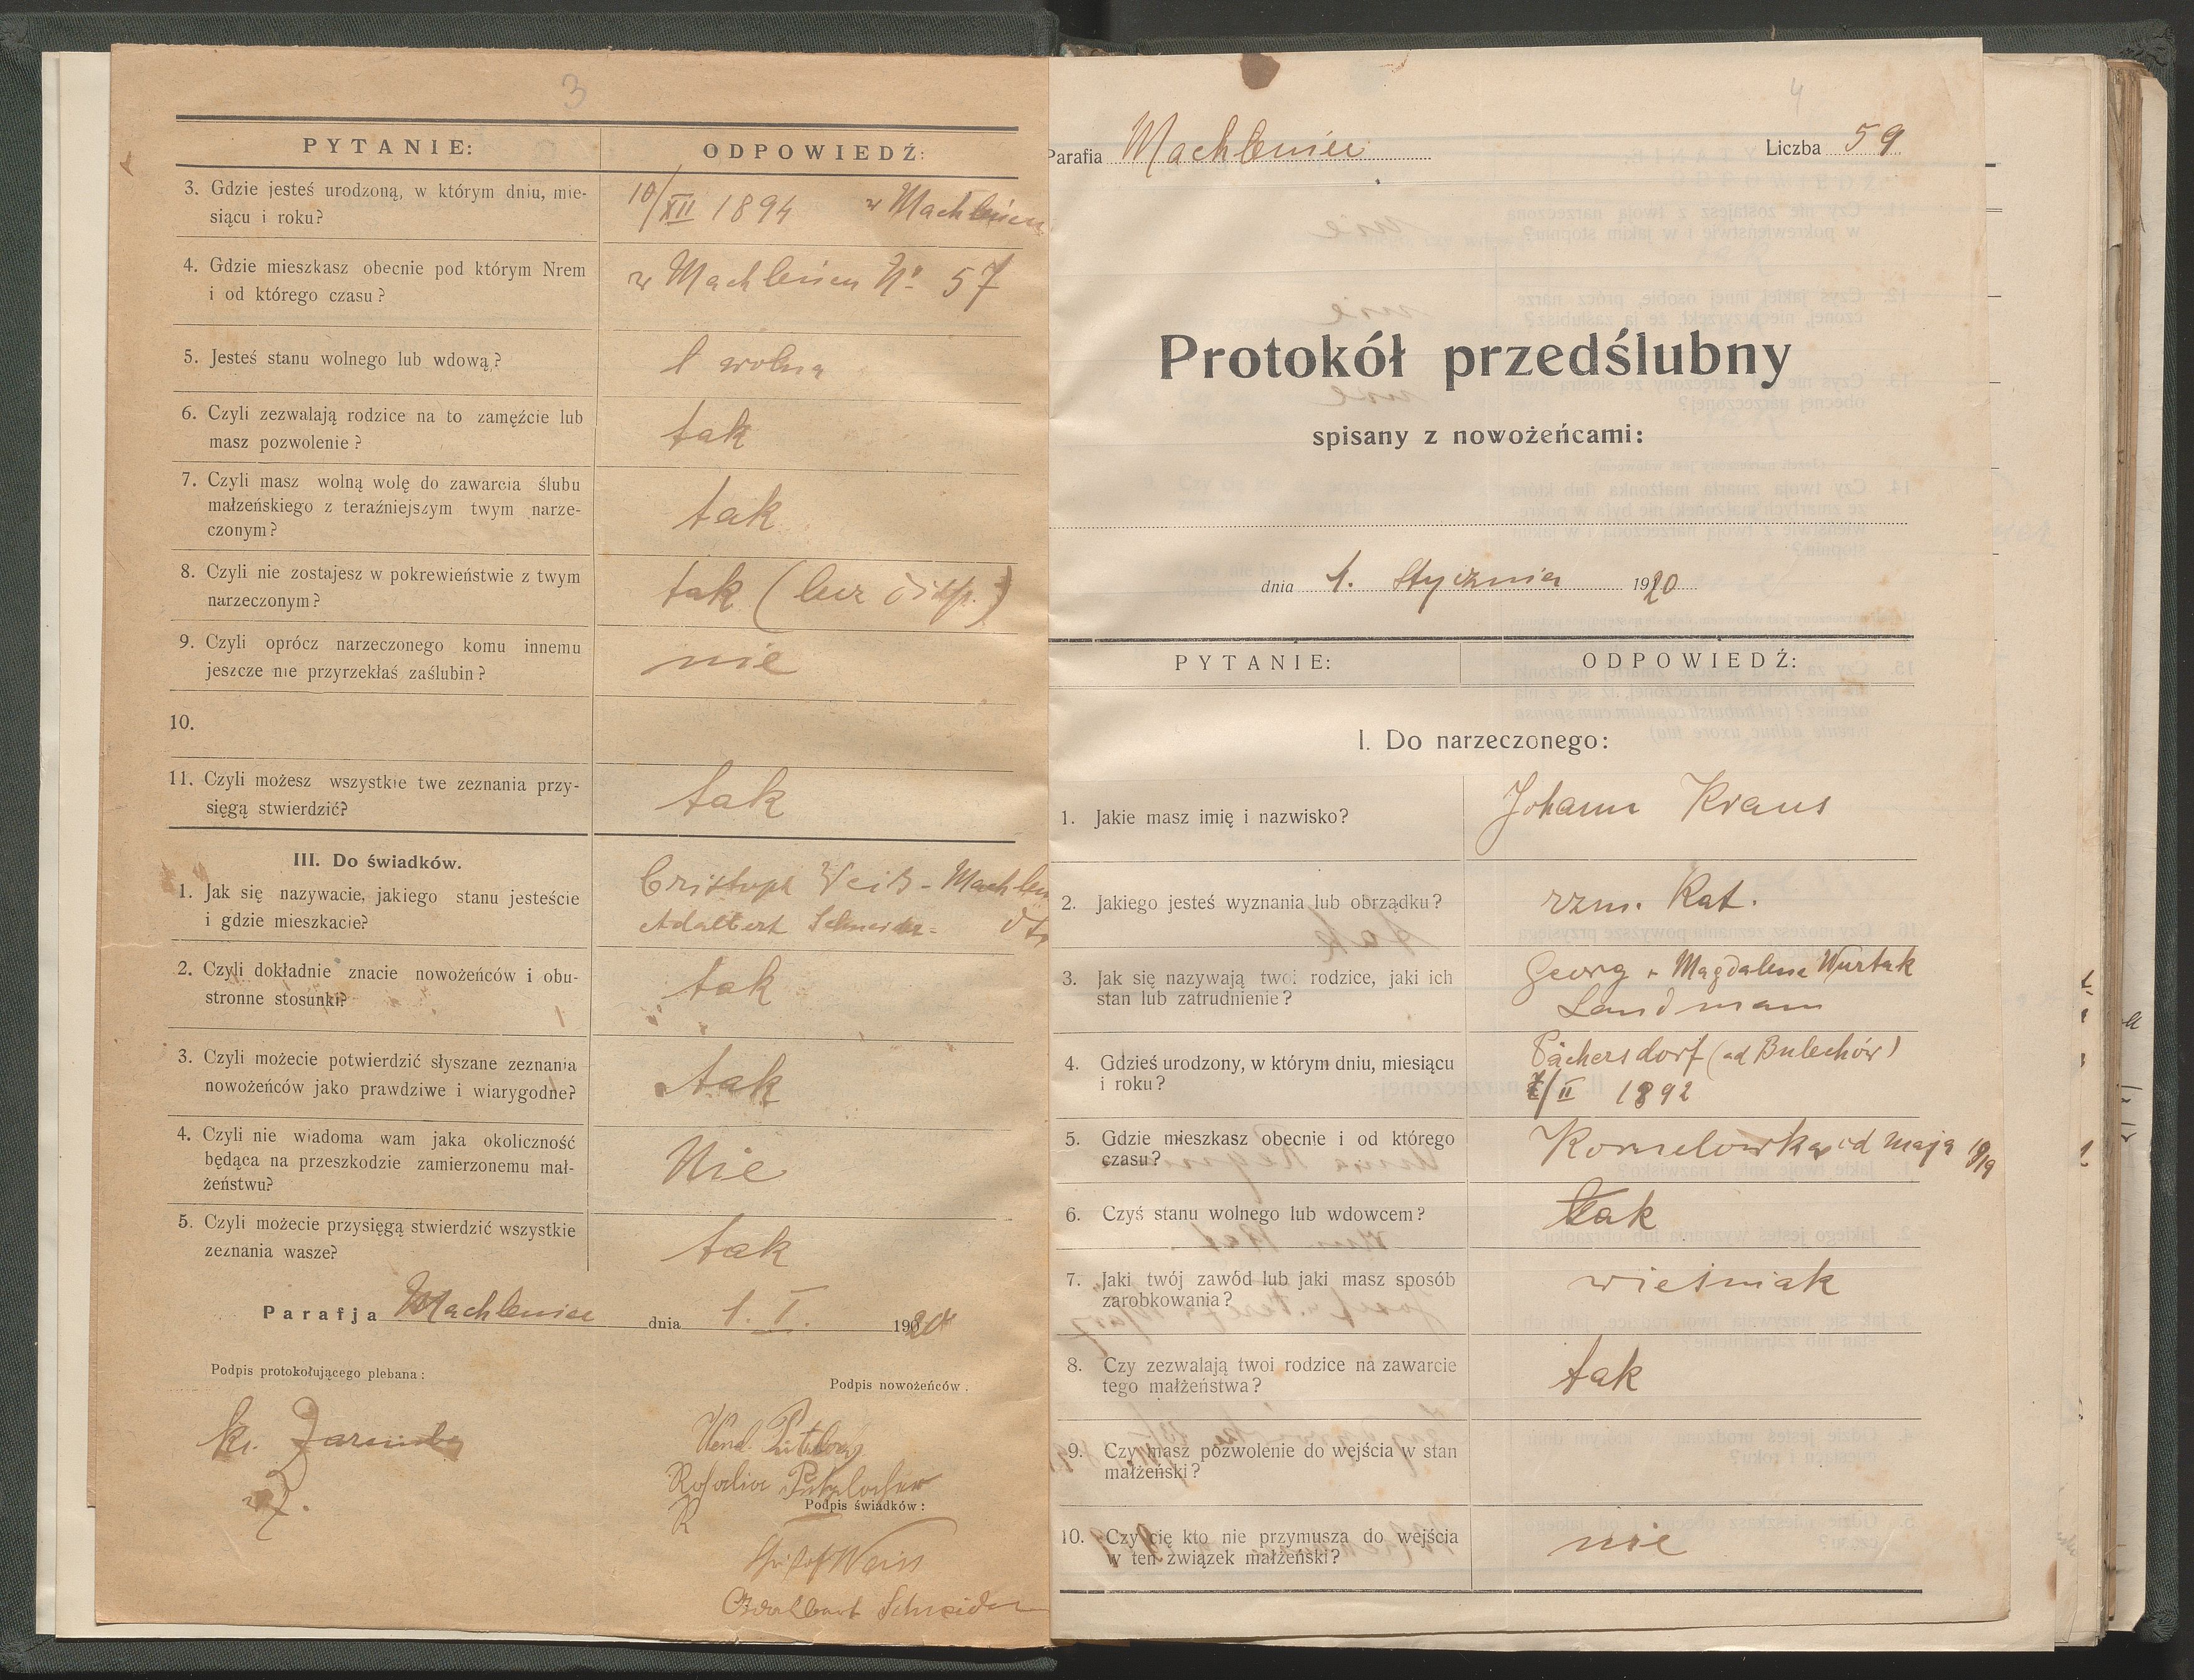 3
PYTANIE:
ODPOWIEDŹ:
3. Gdzie jesteś urodzoną, w którym dniu, mie-
siącu i roku?
10/XII 1894 w Machlińcu
4. Gdzie mieszkasz obecnie pod którym Nrem
i od którego czasu?
w Machlińcu No 57
5. Jesteś stanu wolnego lub wdową?
wolna
6. Czyli zezwalają rodzice na to zamęźcie lub
masz pozwolenie?
tak
7. Czyli masz wolną wolę do zawarcia ślubu
małzeńskiego z teraźniejszym twym narze-
czonym?
tak
8. Czyli nie zostajesz w pokrewieństwie z twym
narzeczonym?
tak (
9. Czyli oprócz narzeczonego komu innemu
jeszcze nie przyrzekłaś zaślubin?
nie
10.
11. Czyli możesz wszystkie twe zeznania przy-
sięgą stwierdzić?
tak
III. Do świadków.
1. Jak się nazywacie, jakiego stanu jesteście
i gdzie mieszkacie?
Cristoph Weiß - Machlin
Adalbert Schneider - dto
2. Czyli dokładnie znacie nowożeńców i obu-
stronne stosunki?
tak
3. Czyli możecie potwierdzić słyszane zeznania
nowożeńców jako prawdziwe i wiarygodne?
tak
4. Czyli nie wiadoma wam jaka okoliczność
będąca na przeszkodzie zamierzonemu mał-
żeństwu?
Nie
5. Czyli możecie przysięgą stwierdzić wszystkie
zeznania wasze?
tak
Parafja Machliniec dnia 1. I. 1920
Podpis protokołującego plebana:
Podpis nowożeńców.
ks. Zaremba
Rosalia
Podpis świadków:
Weiss
Adalbert Schneider
4
Parafia Machliniec
Liczba 59
Protokół przedślubny
spisany z nowożeńcami:
dnia 1. Stycznia 1920
PYTANIE:
ODPOWIEDŹ:
I. Do narzeczonego:
1. Jakie masz imię i nazwisko?
Johann Kraus
2. Jakiego jesteś wyznania lub obrządku?
rzm. Kat.
3. Jak się nazywają twoi rodzice, jaki ich
stan lub zatrudnienie?
Georg u Magdalena Wurtak
Landmann
4. Gdzieś urodzony, w którym dniu, miesiącu
i roku?
(ad Bolechów)
/II 1892
5. Gdzie mieszkasz obecnie i od którego
czasu?
Kornelówka od maja 1919
6. Czyś stanu wolnego lub wdowcem?
tak
7. Jaki twój zawód lub jaki masz sposób
zarobkowania?
wieśniak
8. Czy zezwalają twoi rodzice na zawarcie
tego małżeństwa?
tak
9. Czy masz pozwolenie do wejścia w stan
małżeński?
10. Czy cię kto nie przymusza do wejścia
w ten związek małżeński?
nie